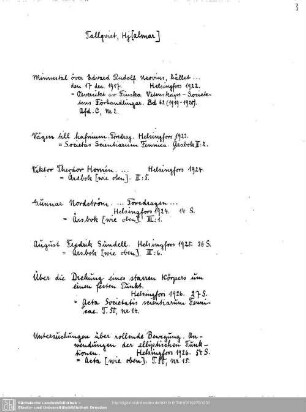 Tallqvist, Hj[almar]
Minnestal över Edvard Rudolf Neovius, hållet ...
den 17 dec. 1919. Helsingfors 1922.
= Översikt av Finska Vetenskaps-Societe-
tens Förhandlingar. Bd 62 (1919-1920).
Afd. C, Nr 2.
Vägen till hafnium. Föredrag. Helsingfors 1923.
= Societas Scientiarum Fennica. Årsbok II: 2.
Viktor Theodor Homén ... Helsingfors 1924.
= Årsbok [wie oben]. II: 5.
Gunnar Nordström. ... Föredragen ...
Helsingfors 1924. 14 S.
= Årsbok [wie oben]. III: 1.
August Fredrik Sundell. Helsingfors 1925. 36 S.
= Årsbok [wie oben]. III: 6.
Über die Drehung eines starren Körpers um
einen festen Punkt.
Helsingfors 1926. 27 S.
= Acta Societatis scientiarum Fenni-
cae. T. 50, nr 14.
Untersuchungen über rollende Bewegung. An-
wendungen der elliptischen Funk-
tionen. Helsingfors 1926. 54 S.
= Acta [wie oben]. T. 50, nr 15.